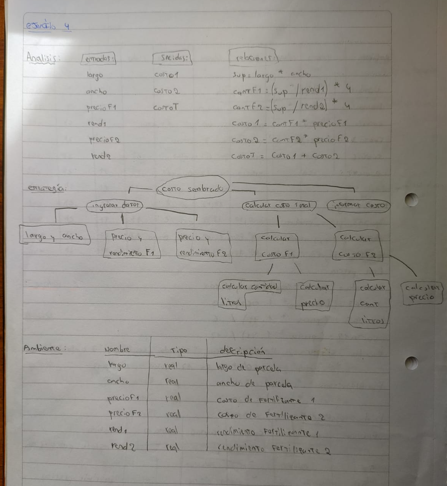 Analisis: entradas: salidas: relaciones:
largo costo1 sup = largo * ancho
ancho costo2 cantF1 = (sup / rend1) * 4
precioF1 costoT cantF2 = (sup / rend2) * 4
rend1 costo1 = cantF1 * precioF1
precioF2 costo2 = cantF2 * precioF2
rend2 costoT = costo1 + costo2
estrategia: costo sembrado
ingresar datos calcular costo total mostrar costo
largo y ancho precio y rendimiento F1 precio y rendimiento F2 calcular costo F1 calcular costo F2
calcular cantidad litros calcular precio calcular cant. litros calcular precio
Ambiente: Nombre Tipo descripcion
largo real largo de parcela
ancho real ancho de parcela
precioF1 real costo de fertilizante 1
precioF2 real costo de fertilizante 2
rend1 real rendimiento fertilizante 1
rend2 real rendimiento fertilizante 2